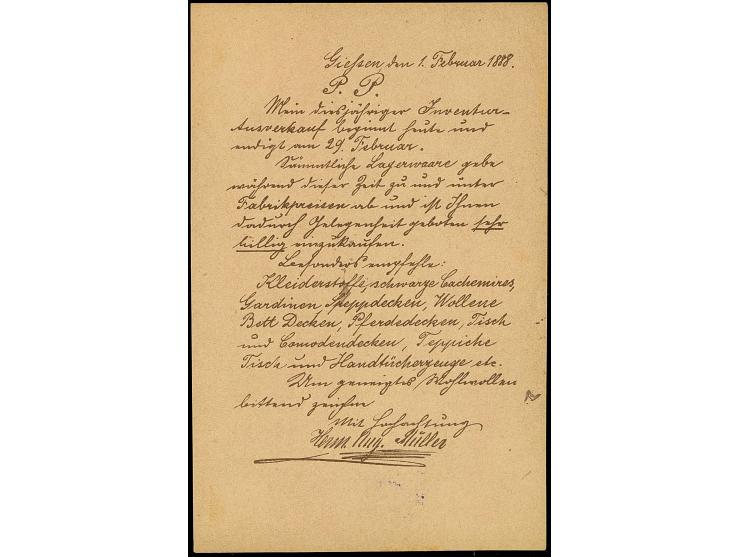 Giessen, den 1. Februar 1888.
P. P.
Mein diesjähriger Inventur-
Ausverkauf beginnt heute und
endigt am 29. Februar.
Sämmtliche Lagerwaare gebe
während dieser Zeit zu und unter
Fabrikpreisen ab und ist Ihnen
dadurch Gelegenheit geboten sehr
billig einzukaufen.
Besonders empfehle:
Kleiderstoffe, schwarze Cachemires,
Gardinen Steppdecken, Wollene
Bett Decken, Pferdedecken, Tisch
und Comodendecken, Teppiche
Tisch und Handtücherzeuge etc.
Um geneigtes Wohlwollen
bittend zeichne
Mit Hochachtung
Herm. Aug. Müller